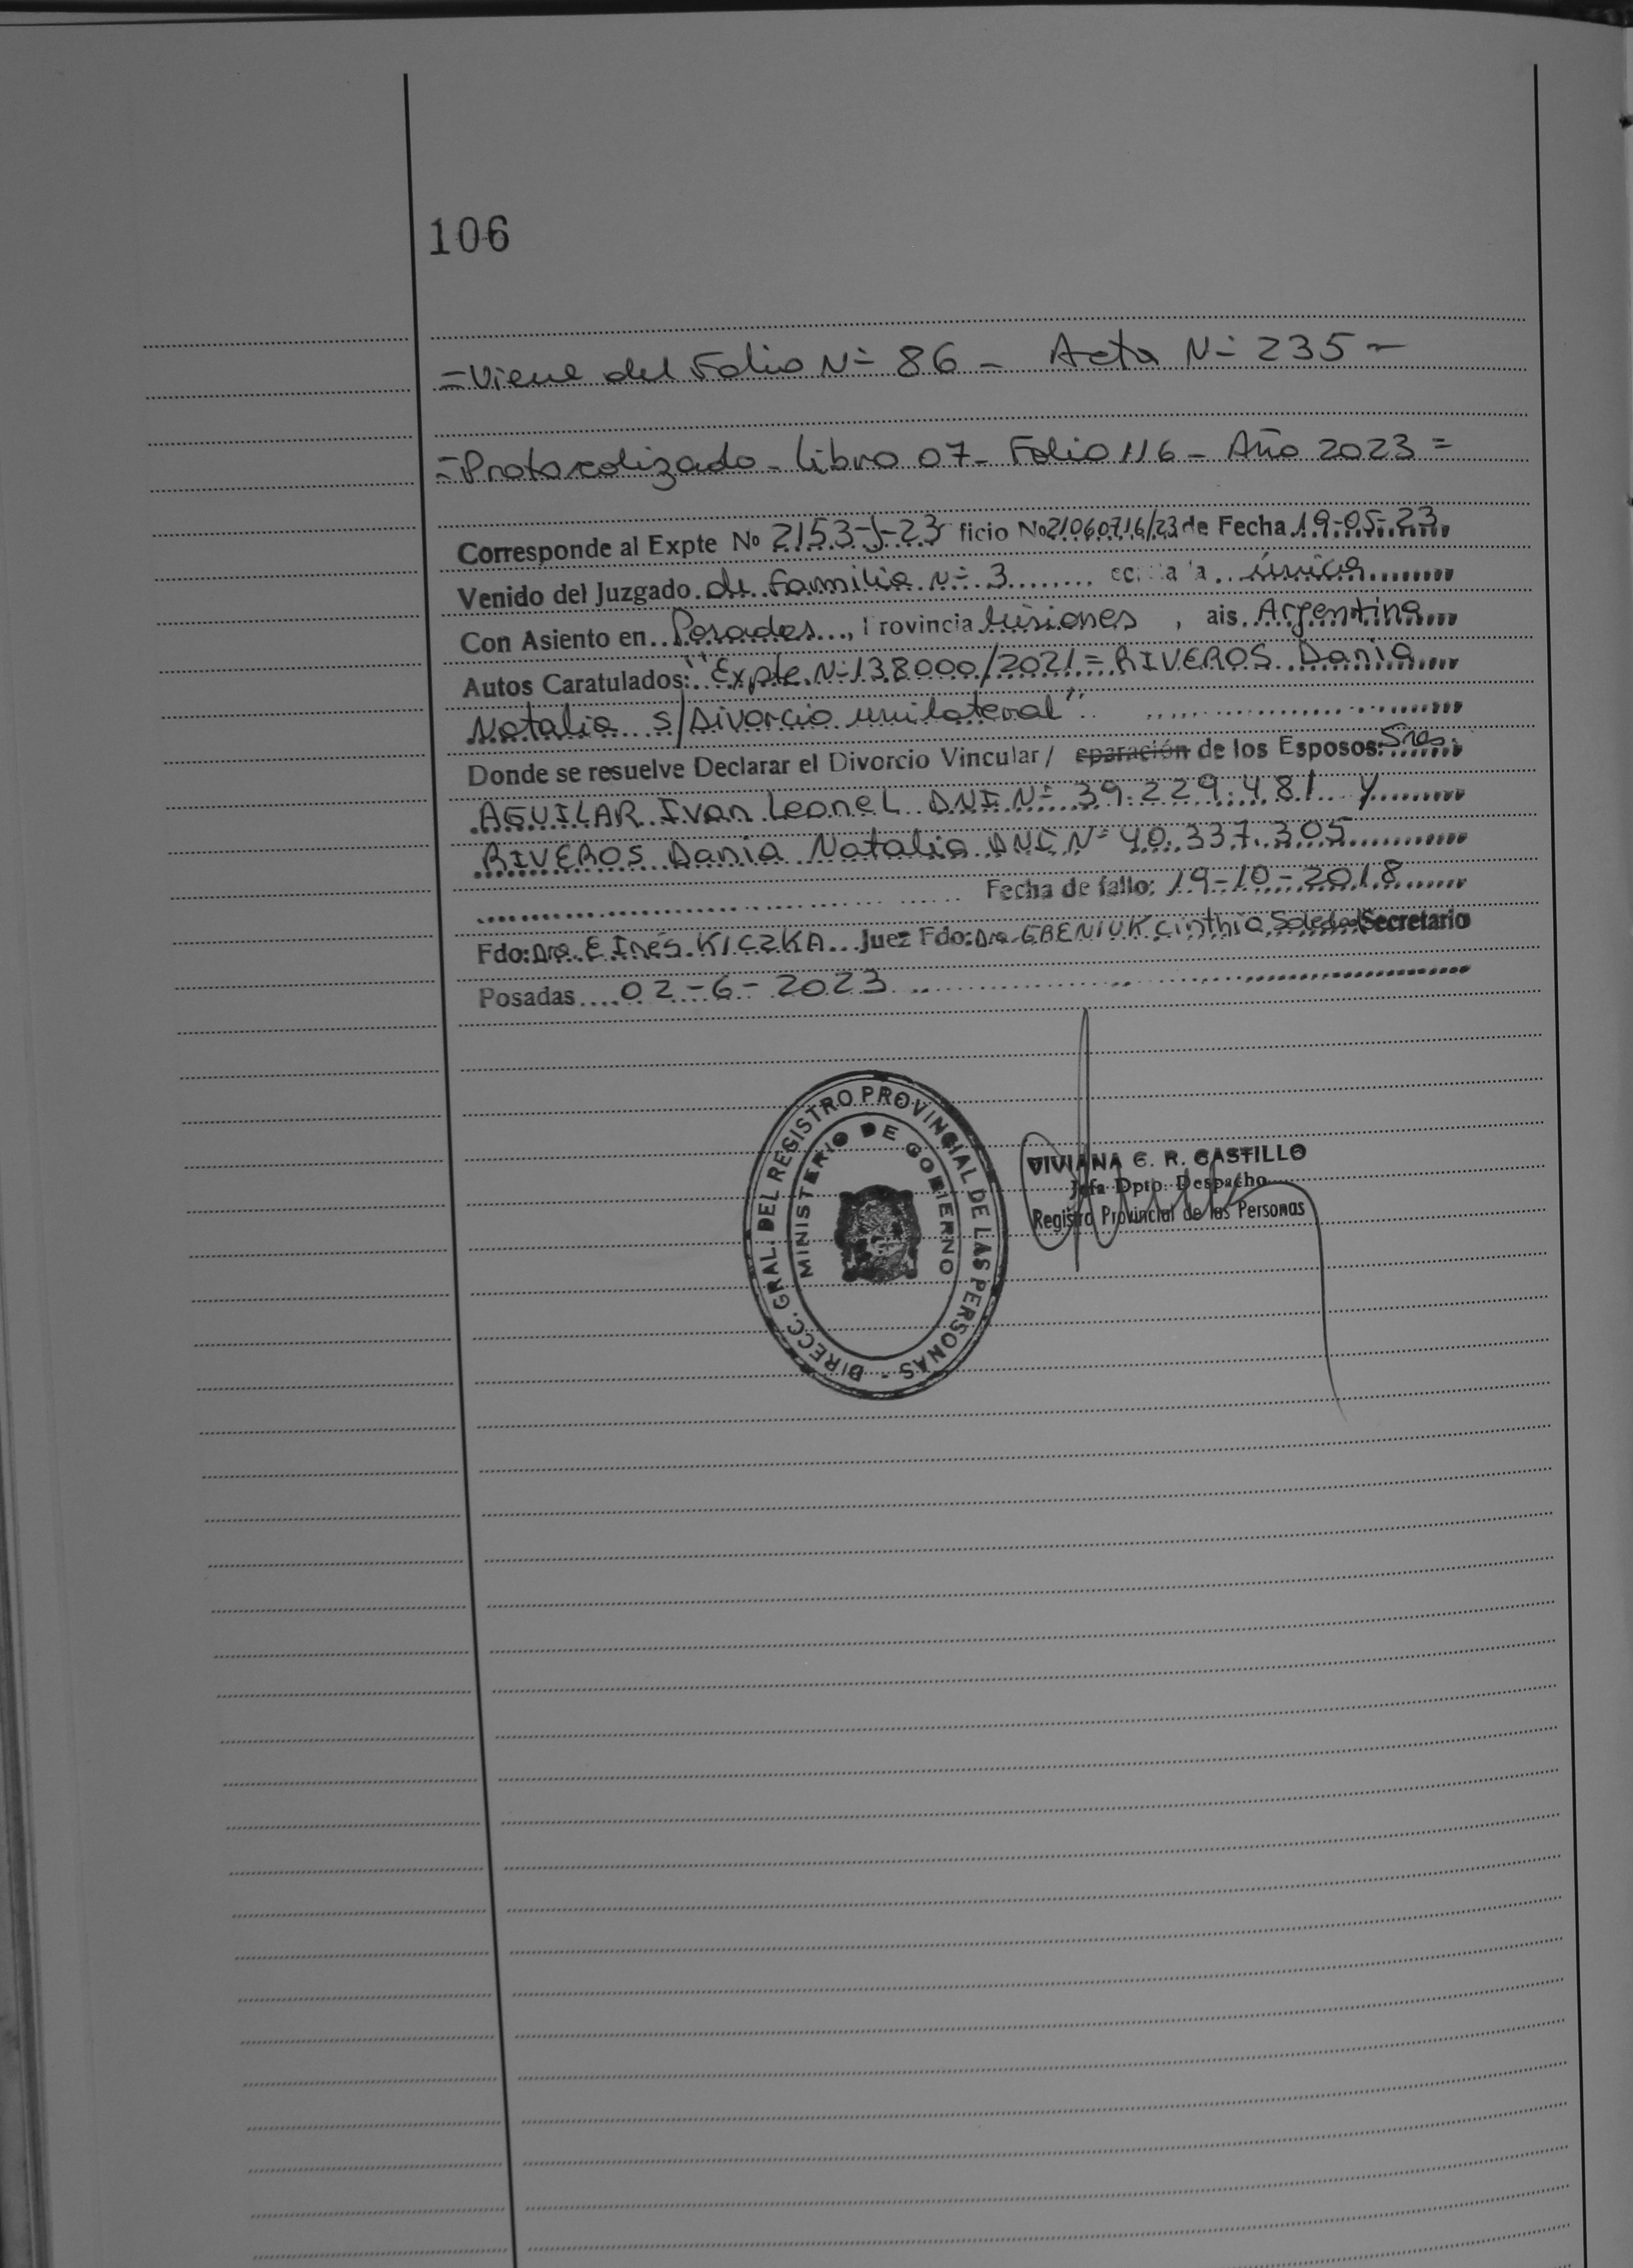 106
=Viene del Folio Nº 86 - Acta Nº 235 -
=Protocolizado - Libro 07 - Folio 116 - Año 2023 =
Corresponde al Expte No 2153-J-23 ficio No 21060716/23 de Fecha 19-05-23
Venido del Juzgado de Familia Nº 3 única
Con Asiento en Posadas, rovincia Misiones, ais Argentina
Autos Caratulados: "Expte. Nº 138000/2021 = RIVEROS Dania
Natalia s/Divorcio unilateral"
Donde se resuelve Declarar el Divorcio Vincular / eparación de los Esposos: Sres.
AGUILAR Ivan Leonel DNI Nº 39.229.481 y
RIVEROS Dania Natalia DNI Nº 40.337.305
Fecha de fallo: 19-10-2018
Fdo: Dra. E Inés KICZKA Juez Fdo: Dra. GBENIUK Cinthia Soledad Secretario
Posadas 02-6-2023
DIRECC. GRAL. DEL REGISTRO PROVINCIAL DE LAS PERSONAS -
MINISTERIO DE GOBIERNO
VIVIANA C. R. CASTILLO
Jefa Dpto. Despacho
Registro Provincial de las Personas